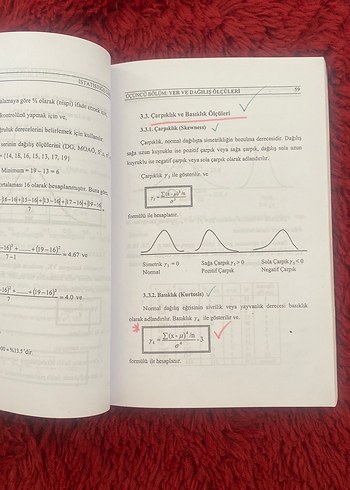 İSTATİSTİK
alamaya göre % olarak (nispi) ifade etmek için,
kontrolünü yapmak için ve,
ğruluk derecelerini belirlemek için kullanılır.
sının dağılış ölçülerini (DG, MOAÖ,
= [14, 18, 16, 15, 13, 17, 19]
Minimum = 19 – 13 = 6
ortalaması 16 olarak hesaplanmıştır. Buna göre,
|18-16|+|15-16|+|13-16|+|17-16|+|19-16|
7
-16)² + ...... + (19-16)²
7-1
= 4,67 ve
-16)² + ...... + (19-16)²
7
= 4.0 ve
ÜÇÜNCÜ BÖLÜM: YER VE DAĞILIŞ ÖLÇÜLERİ 59
3.3. Çarpıklık ve Basıklık Ölçüleri
3.3.1. Çarpıklık (Skewness)
Çarpıklık, normal dağılışta simetrikliğin bozulma derecesidir. Dağılış
sağa uzun kuyruklu ise pozitif çarpık veya sağa çarpık, dağılış sola uzun
kuyruklu ise negatif çarpık veya sola çarpık olarak adlandırılır.
Çarpıklık γ₃ ile gösterilir, ve
γ₃ = Σ(x-μ)³/n
σ³
formülü ile hesaplanır.
Simetrik γ₃ = 0 Sağa Çarpık γ₃ > 0 Sola Çarpık γ₃ < 0
Normal Pozitif Çarpık Negatif Çarpık
3.3.2. Basıklık (Kurtosis)
Normal dağılış eğrisinin sivrilik veya yayvanlık derecesi basıklık
olarak adlandırılır. Basıklık γ₄ ile gösterilir ve,
γ₄ = Σ(x-μ)⁴/n
σ⁴
-3
formülü ile hesaplanır.